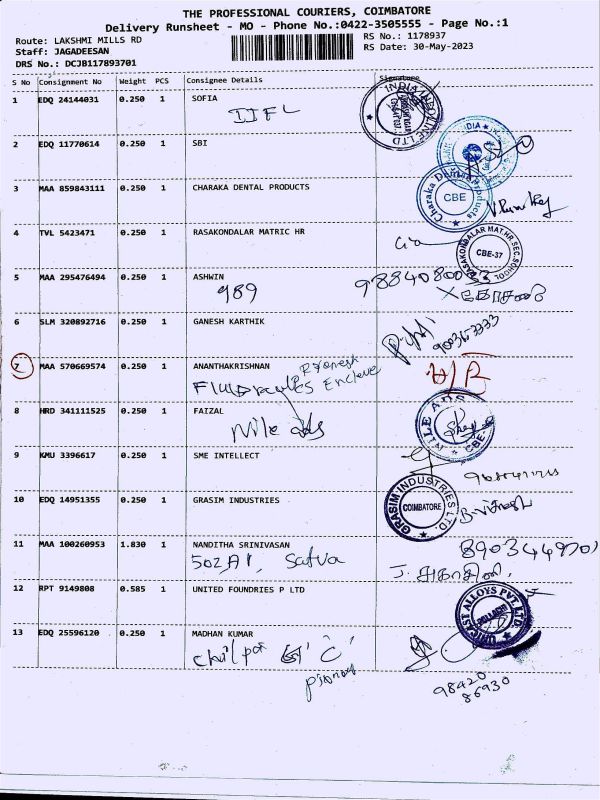 THE PROFESSIONAL COURIERS, COIMBATORE
Delivery Runsheet - MO - Phone No.:0422-3505555 - Page No.:1
Route: LAKSHMI MILLS RD
RS No.: 1178937
Staff: JAGADEESAN
RS Date: 30-May-2023
DRS No.: DCJB117893701
S No Consignment No Weight PCS Consignee Details Signature
1 EDQ 24144031 0.250 1 SOFIA
IIFL
2 EDQ 11770614 0.250 1 SBI
3 MAA 859843111 0.250 1 CHARAKA DENTAL PRODUCTS
CBE
4 TVL 5423471 0.250 1 RASAKONDALAR MATRIC HR
RASAKONDALAR MAT.HR.SEC.SCHOOL
CBE-37
5 MAA 295476494 0.250 1 ASHWIN
989
6 SLM 320892716 0.250 1 GANESH KARTHIK
7 MAA 570669574 0.250 1 ANANTHAKRISHNAN
Enclave
8 HRD 341111525 0.250 1 FAIZAL
Nile ads
NILE ADS
CBE
9 KMU 3396617 0.250 1 SME INTELLECT
10 EDQ 14951355 0.250 1 GRASIM INDUSTRIES
GRASIM INDUSTRIES LTD.
COIMBATORE
11 MAA 100260953 1.830 1 NANDITHA SRINIVASAN
502, A1, Satva
12 RPT 9149808 0.585 1 UNITED FOUNDRIES P LTD
UNICAST ALLOYS PVT. LTD
13 EDQ 25596120 0.250 1 MADHAN KUMAR
98420
86930